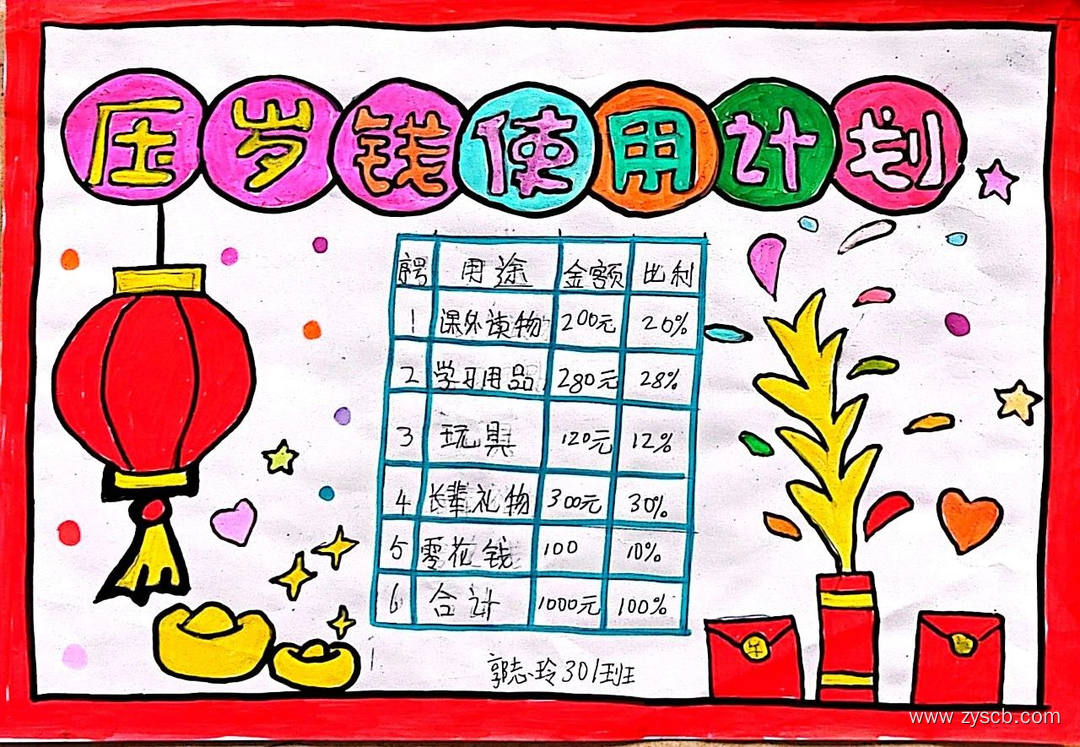 压岁钱使用计划
序号 用途 金额 比利
1 课外读物 200元 20%
2 学习用品 280元 28%
3 玩具 120元 12%
4 长辈礼物 300元 30%
5 零花钱 100 10%
6 合计 1000元 100%
郭志玲301班
www.zyscb.com